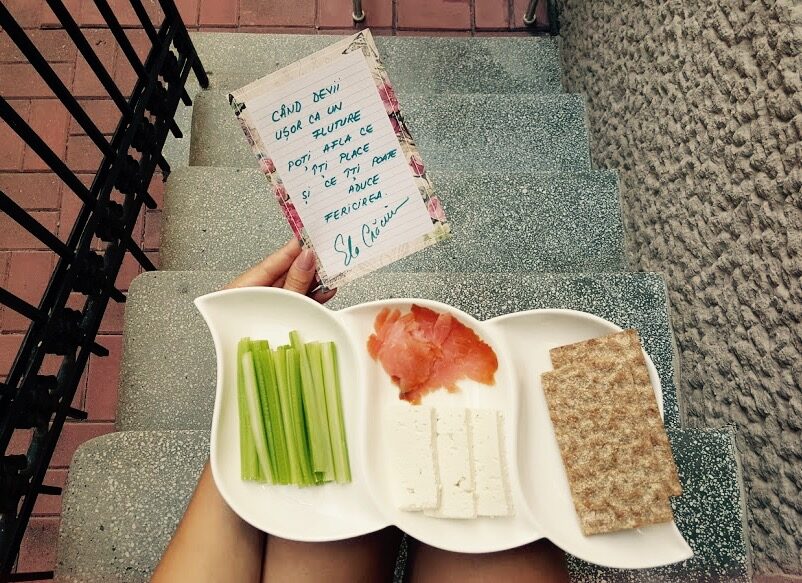 CÂND DEVII
UȘOR CA UN
FLUTURE
POȚI AFLA CE
ÎȚI PLACE
ȘI CE ÎȚI POATE
ADUCE
FERICIREA.
Ela Crăciun